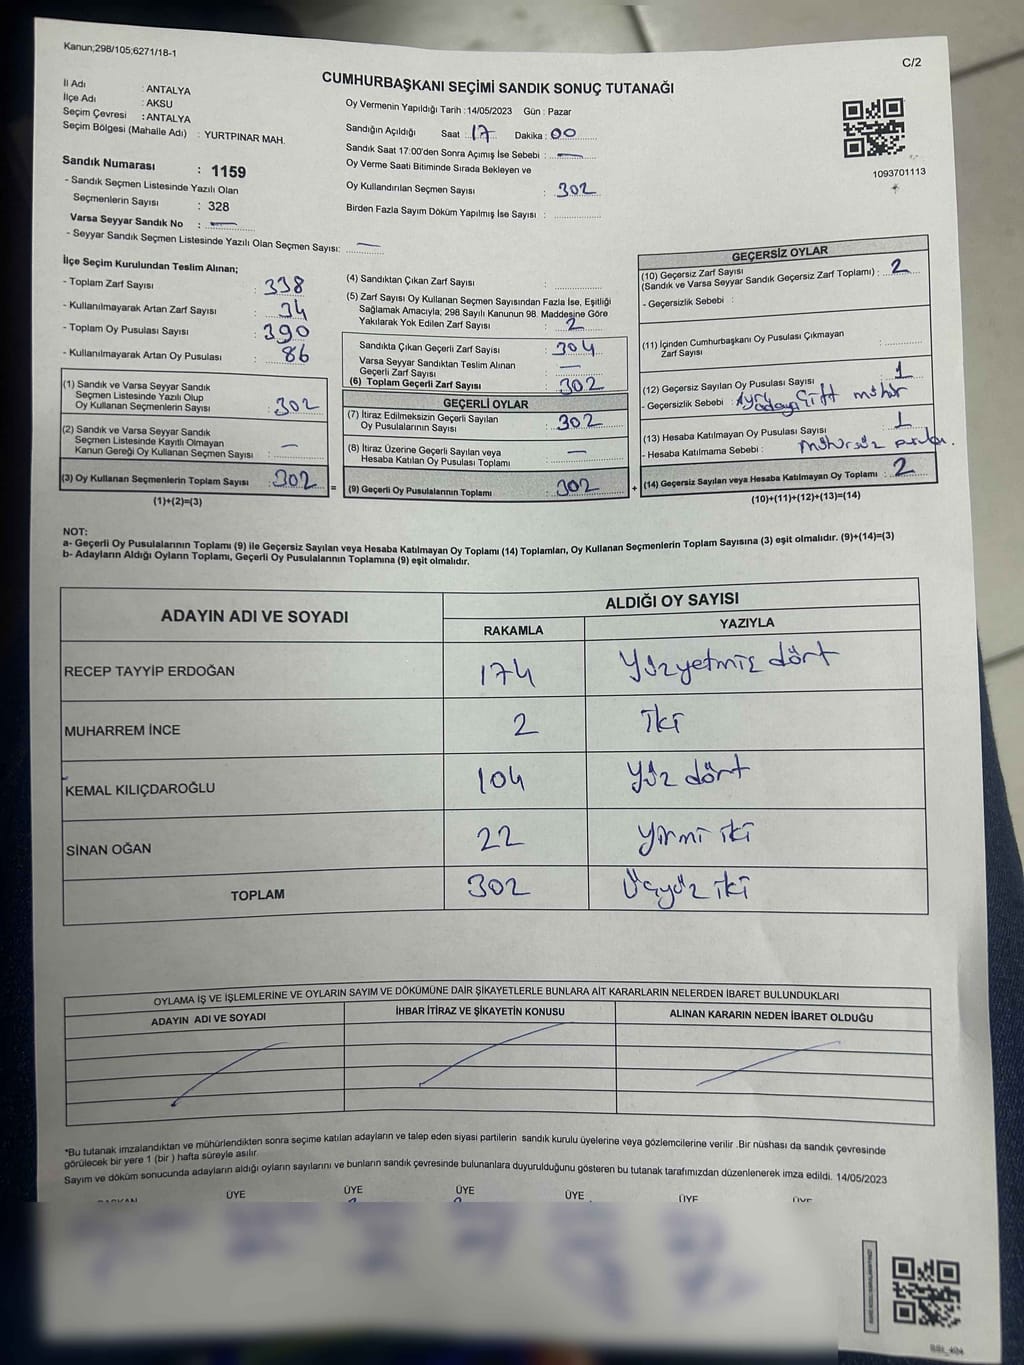 Kanun;298/105;6271/18-1
C/2
CUMHURBAŞKANI SEÇİMİ SANDIK SONUÇ TUTANAĞI
İl Adı : ANTALYA
İlçe Adı : AKSU
Seçim Çevresi : ANTALYA
Seçim Bölgesi (Mahalle Adı) : YURTPINAR MAH.
Oy Vermenin Yapıldığı Tarih : 14/05/2023 Gün : Pazar
Sandığın Açıldığı Saat : 17 Dakika : 00
Sandık Saat 17:00'den Sonra Açımış İse Sebebi : —
Oy Verme Saati Bitiminde Sırada Bekleyen ve
Oy Kullandırılan Seçmen Sayısı : 302
Birden Fazla Sayım Döküm Yapılmış İse Sayısı :
1093701113
Sandık Numarası : 1159
- Sandık Seçmen Listesinde Yazılı Olan
Seçmenlerin Sayısı : 328
Varsa Seyyar Sandık No : —
- Seyyar Sandık Seçmen Listesinde Yazılı Olan Seçmen Sayısı: —
İlçe Seçim Kurulundan Teslim Alınan;
- Toplam Zarf Sayısı : 338
- Kullanılmayarak Artan Zarf Sayısı : 34
- Toplam Oy Pusulası Sayısı : 390
- Kullanılmayarak Artan Oy Pusulası : 86
(1) Sandık ve Varsa Seyyar Sandık
Seçmen Listesinde Yazılı Olup
Oy Kullanan Seçmenlerin Sayısı : 302
(2) Sandık ve Varsa Seyyar Sandık
Seçmen Listesinde Kayıtlı Olmayan
Kanun Gereği Oy Kullanan Seçmen Sayısı : —
(3) Oy Kullanan Seçmenlerin Toplam Sayısı : 302
(1)+(2)=(3)
(4) Sandıktan Çıkan Zarf Sayısı :
(5) Zarf Sayısı Oy Kullanan Seçmen Sayısından Fazla İse, Eşitliği
Sağlamak Amacıyla; 298 Sayılı Kanunun 98. Maddesine Göre
Yakılarak Yok Edilen Zarf Sayısı : 2
Sandıkta Çıkan Geçerli Zarf Sayısı : 304
Varsa Seyyar Sandıktan Teslim Alınan
Geçerli Zarf Sayısı : —
(6) Toplam Geçerli Zarf Sayısı : 302
GEÇERLİ OYLAR
(7) İtiraz Edilmeksizin Geçerli Sayılan
Oy Pusulalarının Sayısı : 302
(8) İtiraz Üzerine Geçerli Sayılan veya
Hesaba Katılan Oy Pusulası Toplamı : —
= (9) Geçerli Oy Pusulalarının Toplamı : 302 +
GEÇERSİZ OYLAR
(10) Geçersiz Zarf Sayısı
(Sandık ve Varsa Seyyar Sandık Geçersiz Zarf Toplamı) : 2
- Geçersizlik Sebebi :
(11) İçinden Cumhurbaşkanı Oy Pusulası Çıkmayan
Zarf Sayısı :
(12) Geçersiz Sayılan Oy Pusulası Sayısı : 1
- Geçersizlik Sebebi : Aynı adaya Çift mühür
(13) Hesaba Katılmayan Oy Pusulası Sayısı : 1
- Hesaba Katılmama Sebebi : mühürsüz pusula.
(14) Geçersiz Sayılan veya Hesaba Katılmayan Oy Toplamı : 2
(10)+(11)+(12)+(13)=(14)
NOT:
a- Geçerli Oy Pusulalarının Toplamı (9) ile Geçersiz Sayılan veya Hesaba Katılmayan Oy Toplamı (14) Toplamları, Oy Kullanan Seçmenlerin Toplam Sayısına (3) eşit olmalıdır. (9)+(14)=(3)
b- Adayların Aldığı Oyların Toplamı, Geçerli Oy Pusulalarının Toplamına (9) eşit olmalıdır.
ADAYIN ADI VE SOYADI ALDIĞI OY SAYISI
RAKAMLA YAZIYLA
RECEP TAYYİP ERDOĞAN 174 Yüzyetmiş dört
MUHARREM İNCE 2 iki
KEMAL KILIÇDAROĞLU 104 Yüz dört
SİNAN OĞAN 22 Yirmi iki
TOPLAM 302 Üçyüz iki
OYLAMA İŞ VE İŞLEMLERİNE VE OYLARIN SAYIM VE DÖKÜMÜNE DAİR ŞİKAYETLERLE BUNLARA AİT KARARLARIN NELERDEN İBARET BULUNDUKLARI
ADAYIN ADI VE SOYADI İHBAR İTİRAZ VE ŞİKAYETİN KONUSU ALINAN KARARIN NEDEN İBARET OLDUĞU
*Bu tutanak imzalandıktan ve mühürlendikten sonra seçime katılan adayların ve talep eden siyasi partilerin sandık kurulu üyelerine veya gözlemcilerine verilir .Bir nüshası da sandık çevresinde
görülecek bir yere 1 (bir ) hafta süreyle asılır.
Sayım ve döküm sonucunda adayların aldığı oyların sayılarını ve bunların sandık çevresinde bulunanlara duyurulduğunu gösteren bu tutanak tarafımızdan düzenlenerek imza edildi. 14/05/2023
BAŞKAN ÜYE ÜYE ÜYE ÜYE ÜYE ÜYE